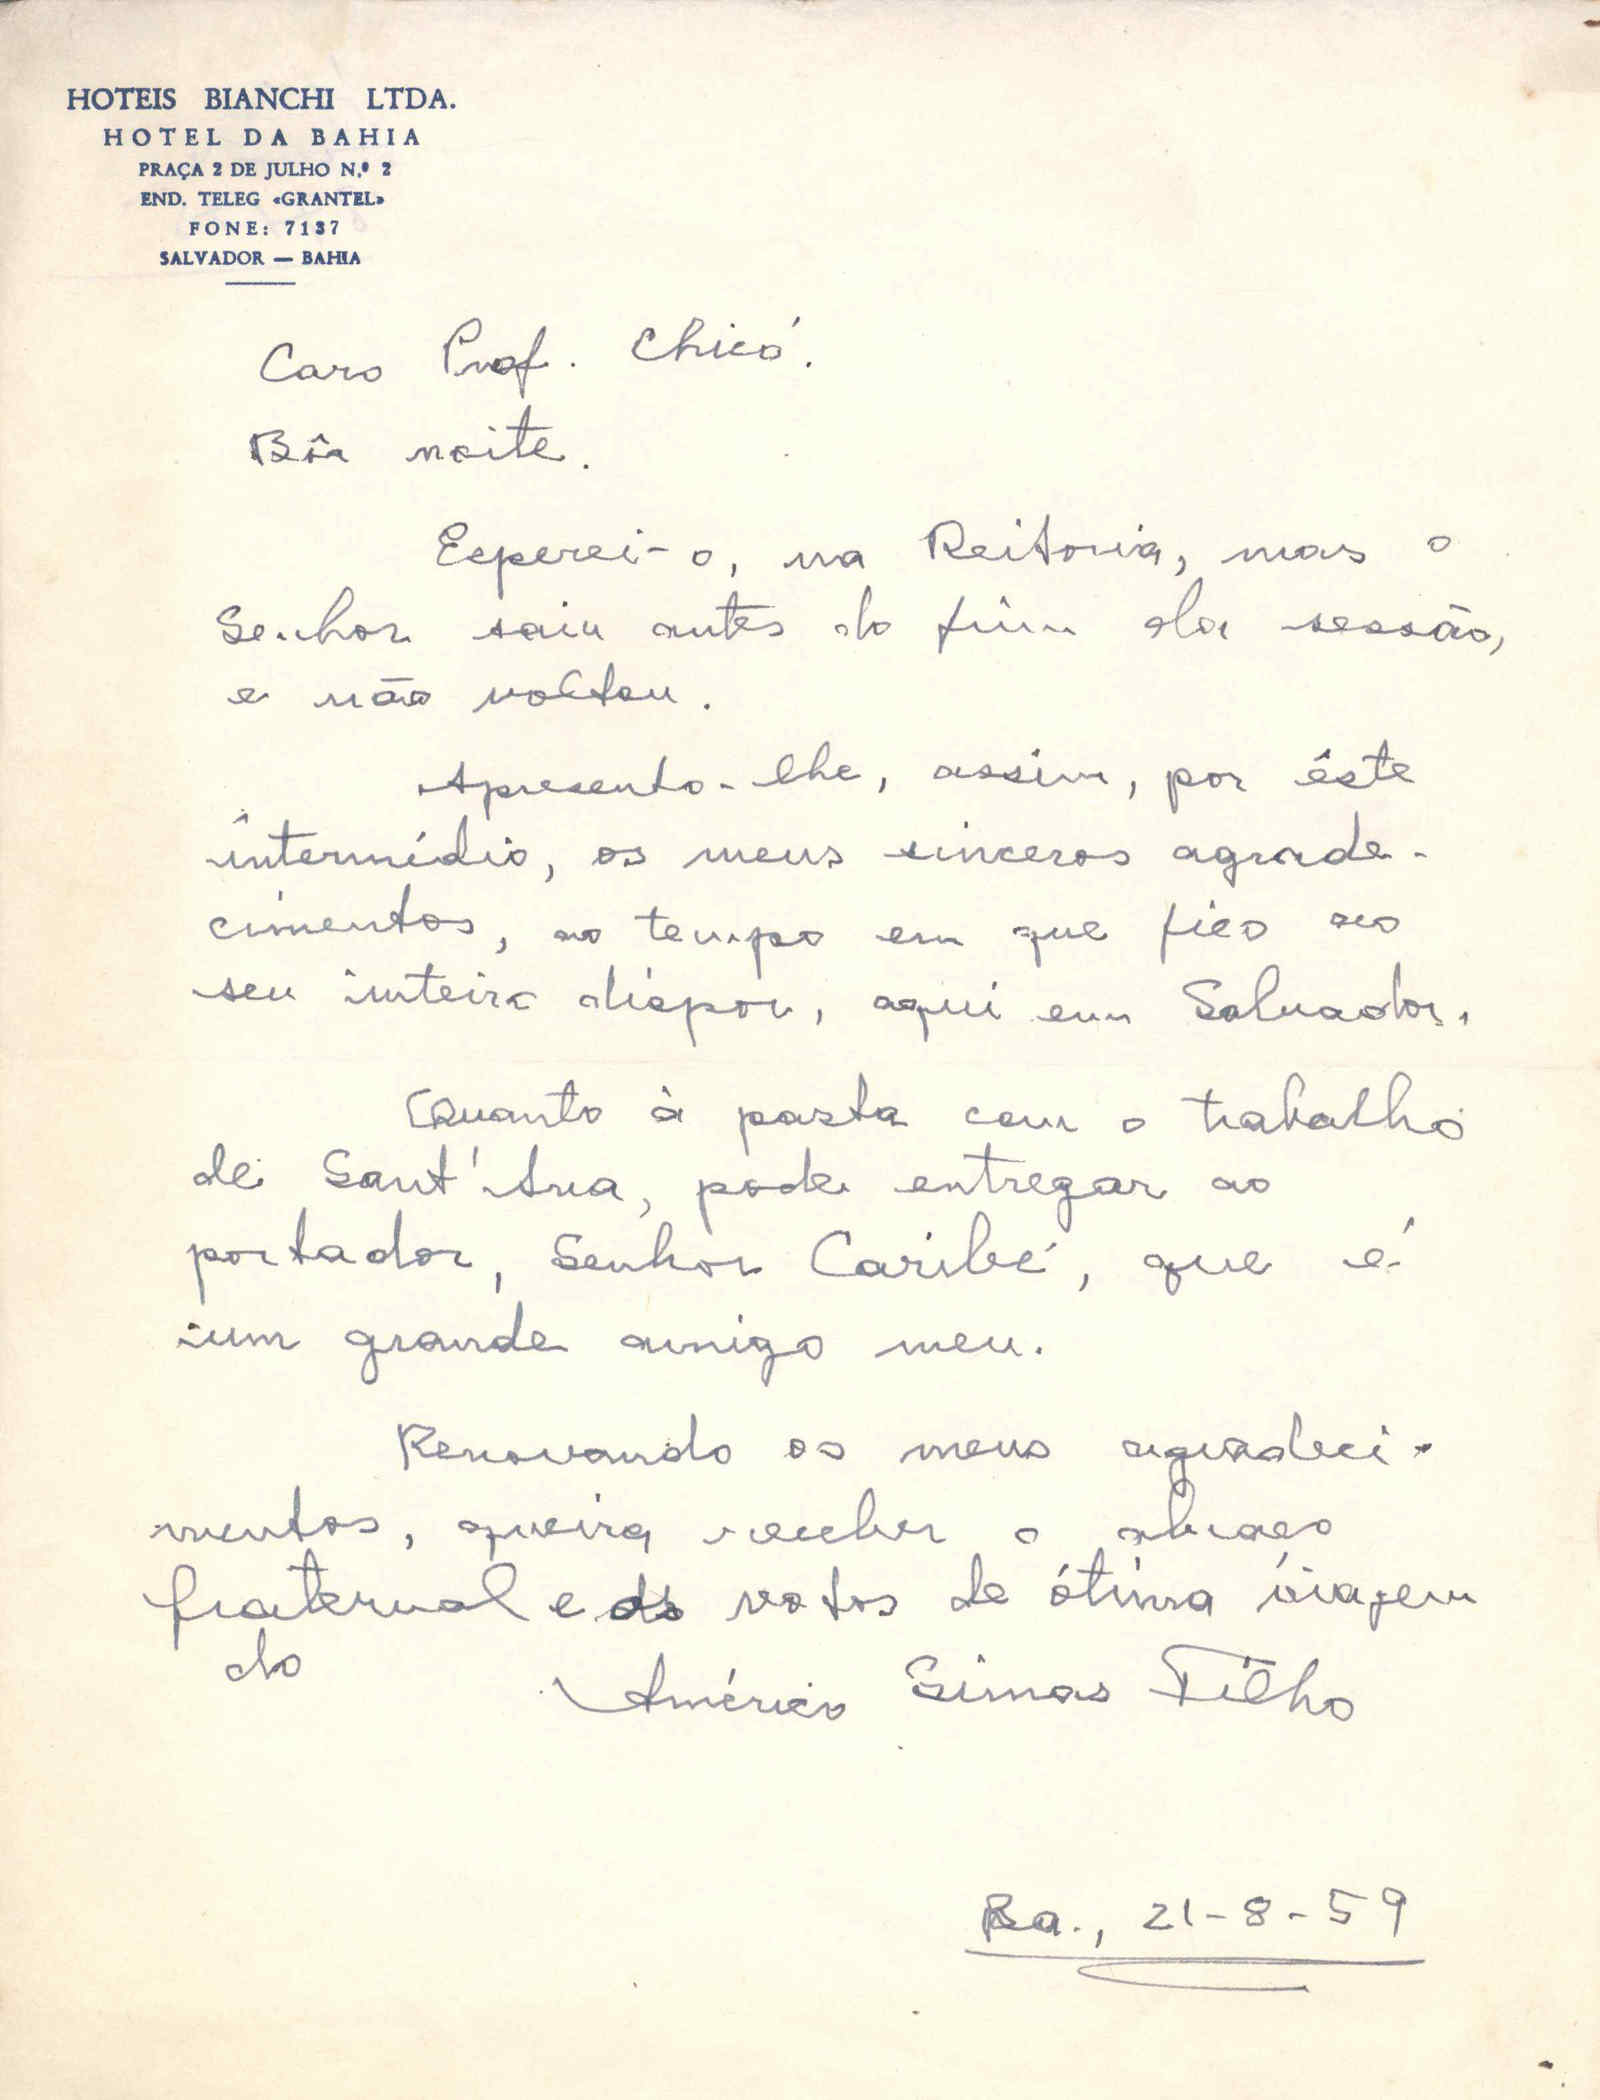 HOTEIS BIANCHI LTDA.
HOTEL DA BAHIA
PRAÇA 2 DE JULHO N.º 2
END. TELEG «GRANTEL»
FONE: 7137
SALVADOR — BAHIA
Caro Prof. Chicó.
Bôa noite.
Esperei-o, na Reitoria, mas o
Senhor saiu antes do fim da sessão,
e não voltou.
Apresento-lhe, assim, por êste
intermédio, os meus sinceros agrade-
cimentos, ao tempo em que fico ao
seu inteiro dispor, aqui em Salvador.
Quanto à pasta com o trabalho
de Sant'Ana, pode entregar ao
portador, Senhor Caribé, que é
um grande amigo meu.
Renovando os meus agradeci-
mentos, queira receber o abraço
fraternal e os votos de ótima viagem
do
Américo Simas Filho
Ba., 21-8-59